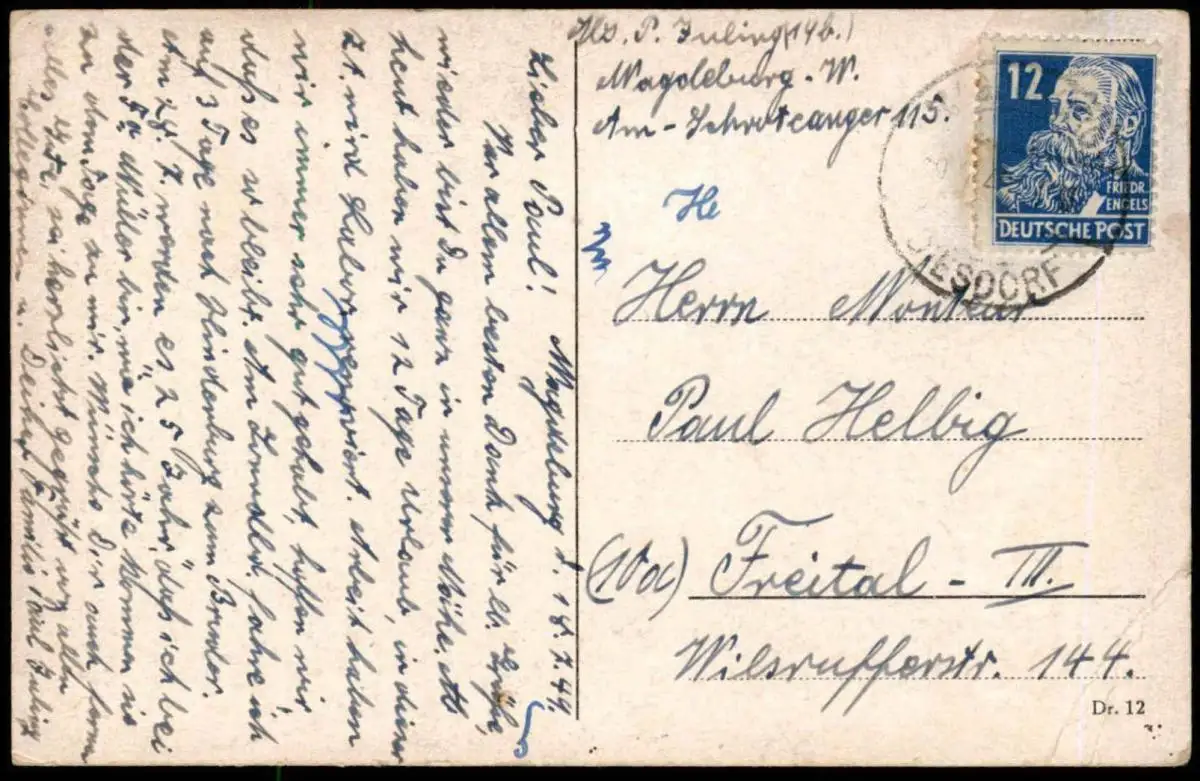 Abs. P. Juling (19b.)
Magdeburg-W.
Am-Schroteanger 115.
12
FRIEDR.
ENGELS
DEUTSCHE POST
DIESDORF
He
Herrn Monteur
Paul Helbig
(10a) Freital - III.
Wilsrufferstr. 144.
Dr. 12
Magdeburg d. 18.7.49.
Lieber Paul!
Vor allem besten Dank für lb. Grüße,
wieder bist Du ganz in unserer Nähe. Ab
heut haben wir 12 Tage Urlaub, in dieser
Zt. wird repariert. Arbeit haben
wir immer sehr gut gehabt, hoffen wir
daß es so bleibt. Am fahre ich
auf 3 Tage nach Hindenburg zum Bruder.
Am 28.7. werden es 25 Jahr, daß ich bei
der Fa Müller bin, wie ich hörte kommen sie
an dem Tage zu mir. Dir auch ferner
alles Gute, sei herzlichst gegrüßt von allen
u. Deiner Familie Paul Juling